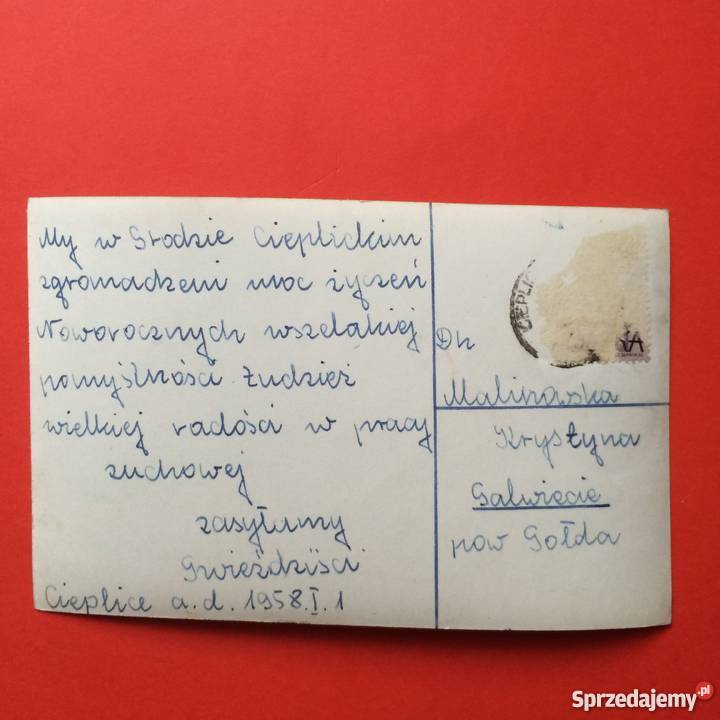 My w Grodzie Cieplickim
zgromadzeni moc życzeń
Noworocznych wszelakiej
pomyślności tudzież
wielkiej radości w pracy
zuchowej
zasyłamy
Gwieździści
Cieplice a.d. 1958.I.1
CIEPLIC
Dh
Malinowska
Krystyna
Galwiecie
pow Gołda
Sprzedajemy.pl